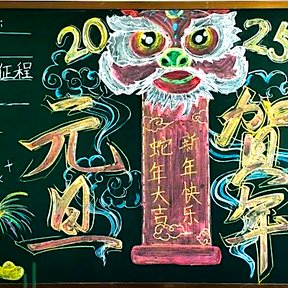 2025
征程
元旦
新年快乐
蛇年大吉
贺年